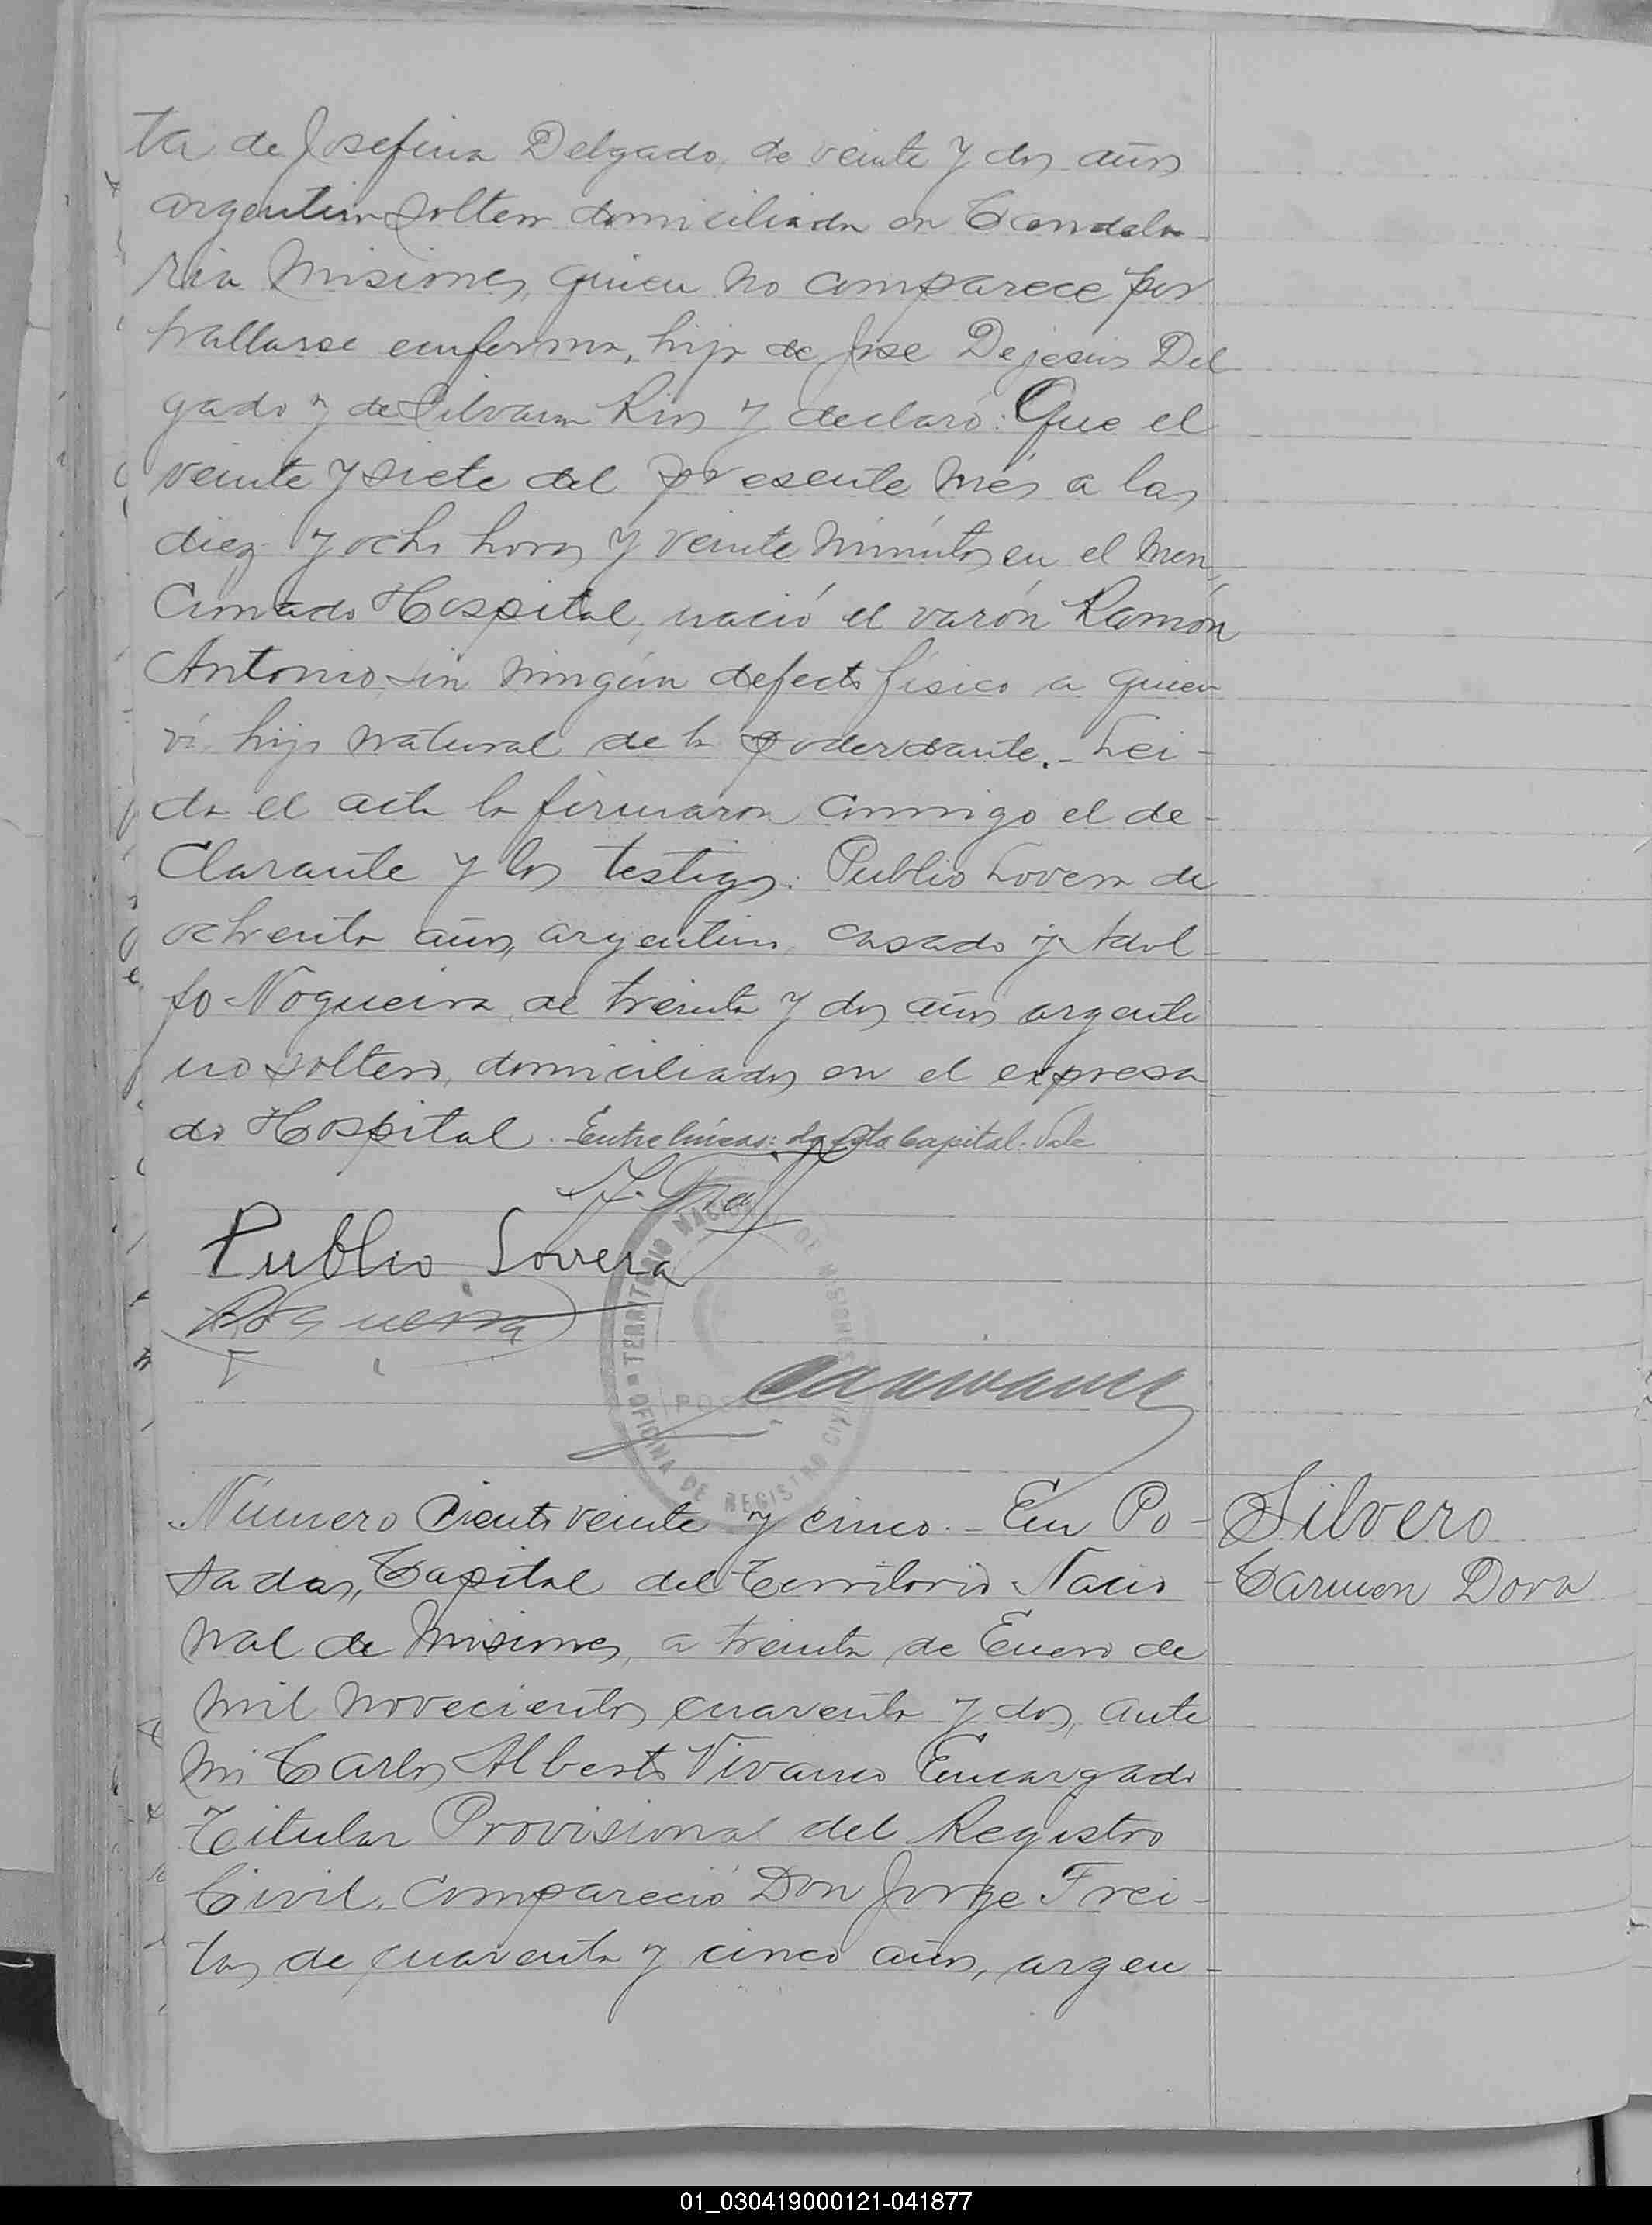 ta de Josefina Delgado, de veinte y dos años
argentina soltera domiciliada en Candela-
ria Misiones, quien no comparece por
hallarse enferma, hija de Jose Dejesus Del
gado y de Silvana Rios y declaró: Que el
veinte y siete del presente més a las
diez y ocho horas y veinte minutos en el men
cionado Hospital, nació el varón Ramón
Antonio, sin ningún defecto físico a quien
ví hijo natural de la poderdante.- Leí-
da el acta la firmaron conmigo el de-
clarante y los testigos: Publio Lovera de
ochenta años, argentino, casado y Adol-
fo Nogueira, de treinta y dos años argenti
no soltero, domiciliados en el expresa
do Hospital. Entre líneas: de esta Capital. Vale
Publio Lovera
Nogueira
TERRITORIO NACIONAL DE MISIONES
OFICINA DE REGISTRO CIVIL
Número Ciento veinte y cinco.- En Po-
sadas, Capital del Territorio Nacio-
nal de Misiones, a treinta de Enero de
mil novecientos cuarenta y dos, ante
mi Carlos Alberto Vivanco Encargado
Titular Provisional del Registro
Civil. Compareció Don Jorge Frei-
tas de cuarenta y cinco años, argen-
Silvero
Carmen Dora
01_030419000121-041877